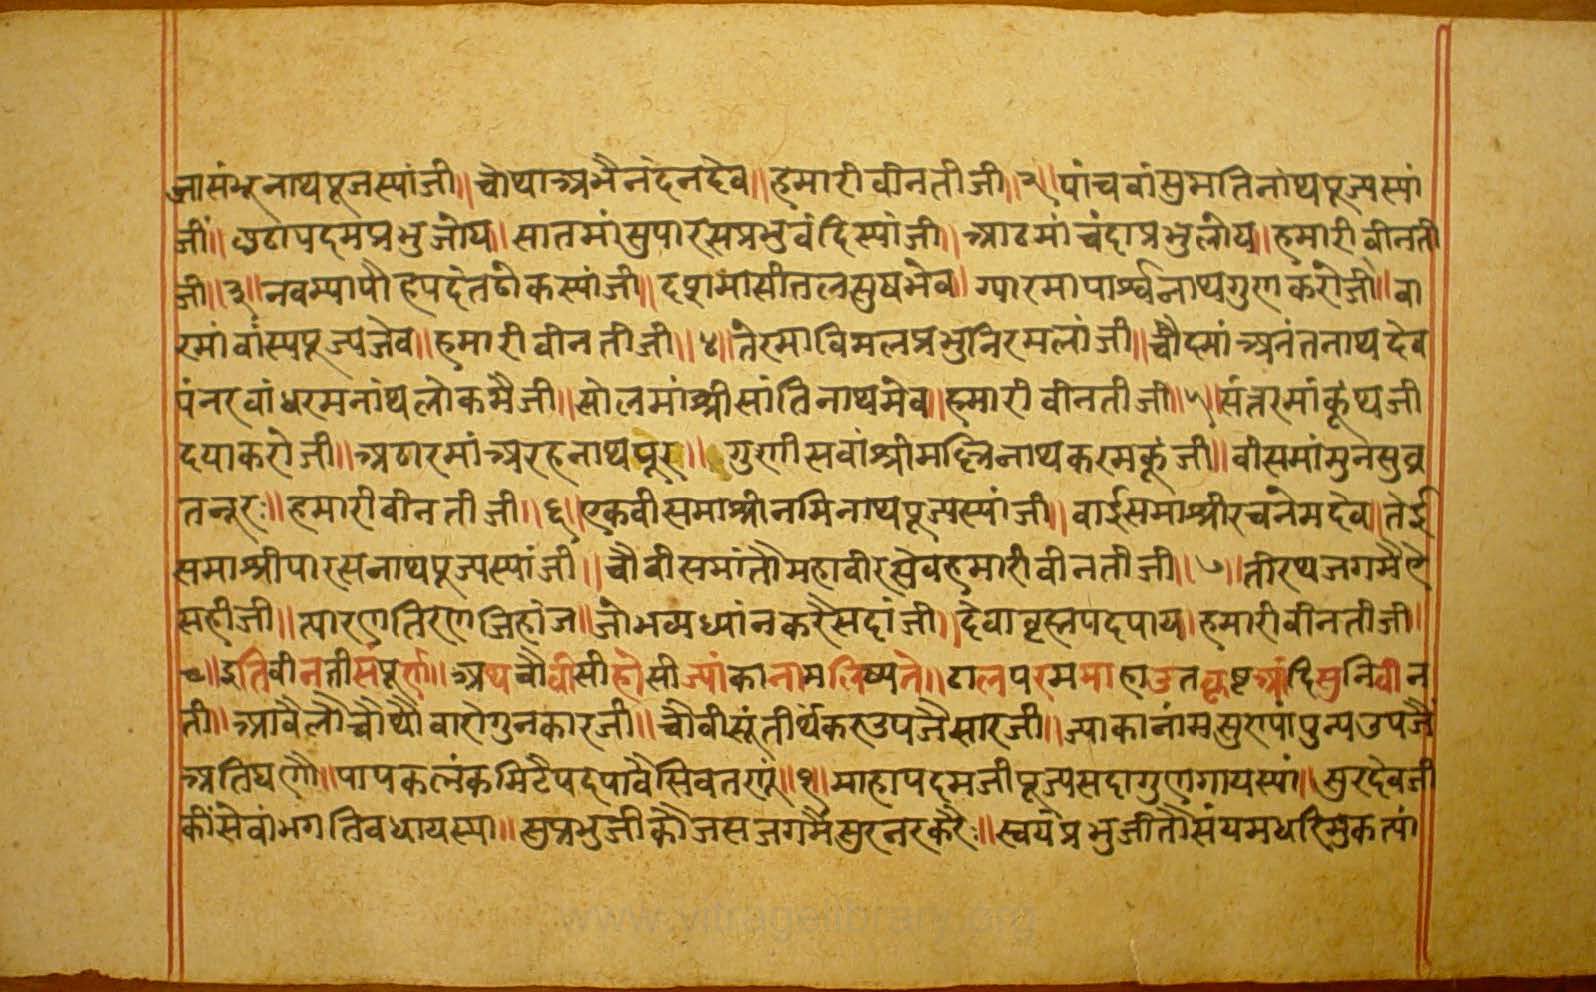 जासंभूनाथपूजस्यांजी॥चोथाअभैनंदनदेव॥हमारीवीनतीजी॥२॥पांचवांसुमतिनाथपूज्यस्यां
जीं॥छठापदमप्रभुजोय॥सातमांसुपारसप्रभुवंदिस्यांजी॥आठमांचंदाप्रभुलोय॥हमारीवीनती
जी॥३॥नवम्यापौहपदंतढोकस्यांजी॥दशमासीतलसुषमेव॥ग्यारमापार्श्वनाथगुणकरोजी॥वा
रमांवांस्यपूज्यजेव॥हमारीवीनतीजी॥४॥तेरमाविमलप्रभुनिरमलांजी॥चौदमांअनंतनाथदेव
पंनरवांधरमनांथलोकमैजी॥सोलमांश्रीसांतिनाथमेव॥हमारीवीनतीजी॥५॥संतरमांकूंथजी
दयाकरोजी॥अठारमांअरहनाथपूर॥गुणीसवांश्रीमल्लिनाथकरमकूंजी॥वीसमांमुनसुव्र
तनूर॥हमारीवीनतीजी॥६॥एकवीसमाश्रीनमिनाथपूज्यस्यांजी॥वाईसमाश्रीरचनेमदेव॥तेई
समाश्रीपारसनाथपूज्यस्यांजी॥चौवीसमांतौमहावीरसेवहमारीवीनतीजी॥७॥तीरथजगमैऐ
सहीजी॥त्यारणतिरणजिहांज॥जोभव्यध्यांनकरैसदांजी॥देवाव्रह्नपदपाय॥हमारीवीनतीजी॥
८॥इतिवीनतीसंपूर्ण॥अथचौवीसीहोसीज्यांकानामलिष्यते॥ढालपरममाहाउतकृष्टआंदिसुनिवीन
ती॥आवैलौचौथौवारोगुनकारजी॥चौवीसूंतीर्थंकरउपजैसारजी॥ज्याकानांमसुणयांपुन्यउपजै
अतिघणौ॥पापकलंकमिटैपदपावैसिवतणूं॥१॥माहापदमजीपूज्यसदागुणगायस्यां॥सुरदेवजी
कींसेवांभगतिवधायस्या॥सुप्रभुजीकौजसजगमैसुरनरकरै॥स्वयंप्रभुजीतौसंयमधरिमुकत्यां
www.vitragelibrary.org